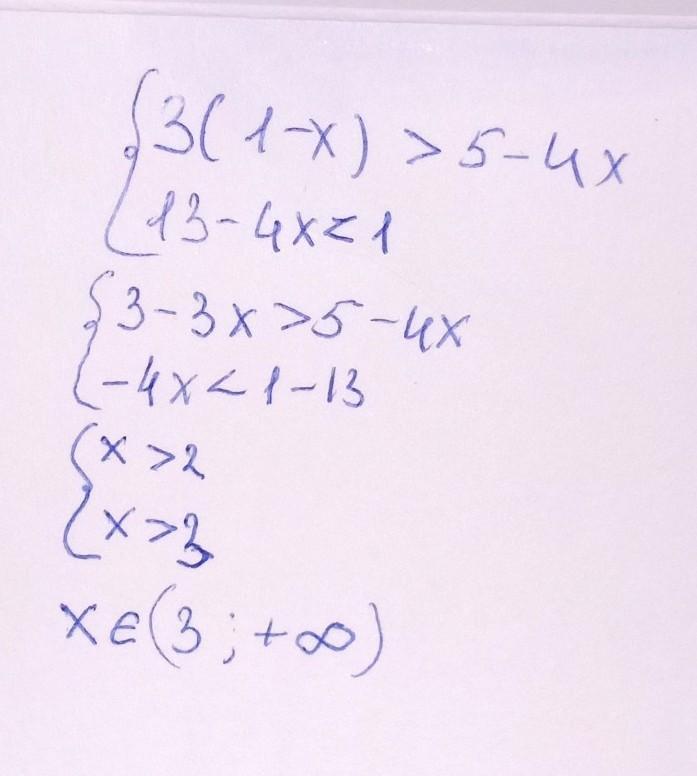 {3(1-x) > 5-4x
13-4x<1
{3-3x>5-4x
-4x<1-13
{x>2
x>3
x∈(3;+∞)